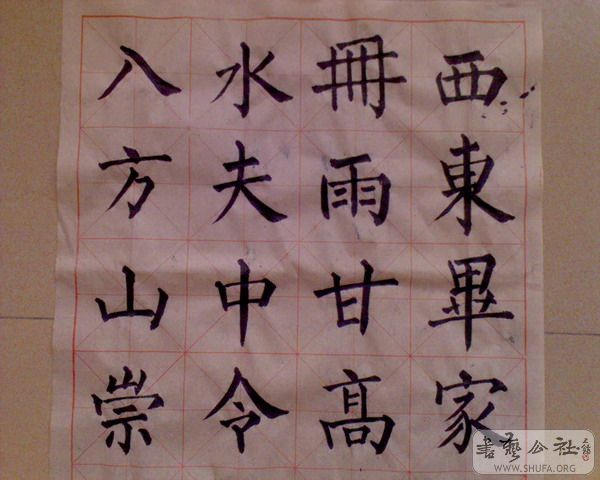 西東畢家
冊雨甘高
水夫中令
八方山崇
書藝公社
WWW.SHUFA.ORG